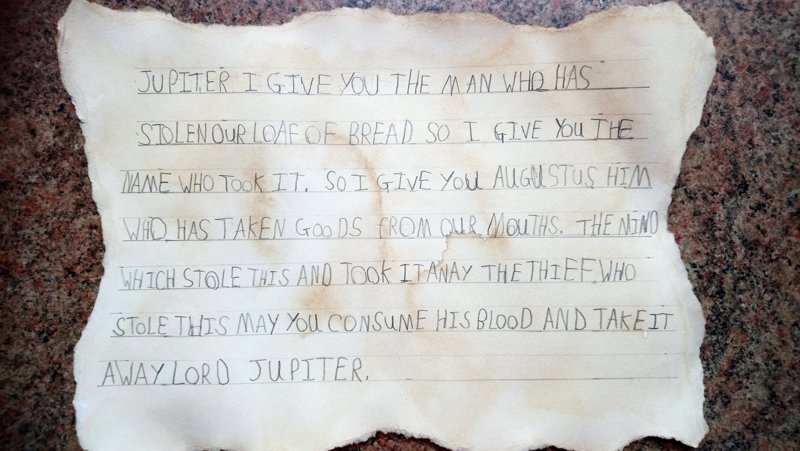 JUPITER I GIVE YOU THE MAN WHO HAS
STOLEN OUR LOAF OF BREAD SO I GIVE YOU THE
NAME WHO TOOK IT. SO I GIVE YOU AUGUSTUS HIM
WHO HAS TAKEN GOODS FROM OUR MOUTHS. THE MIND
WHICH STOLE THIS AND TOOK IT ANAY THE THIEF. WHO
STOLE THIS MAY YOU CONSUME HIS BLOOD AND TAKE IT
AWAY LORD JUPITER.